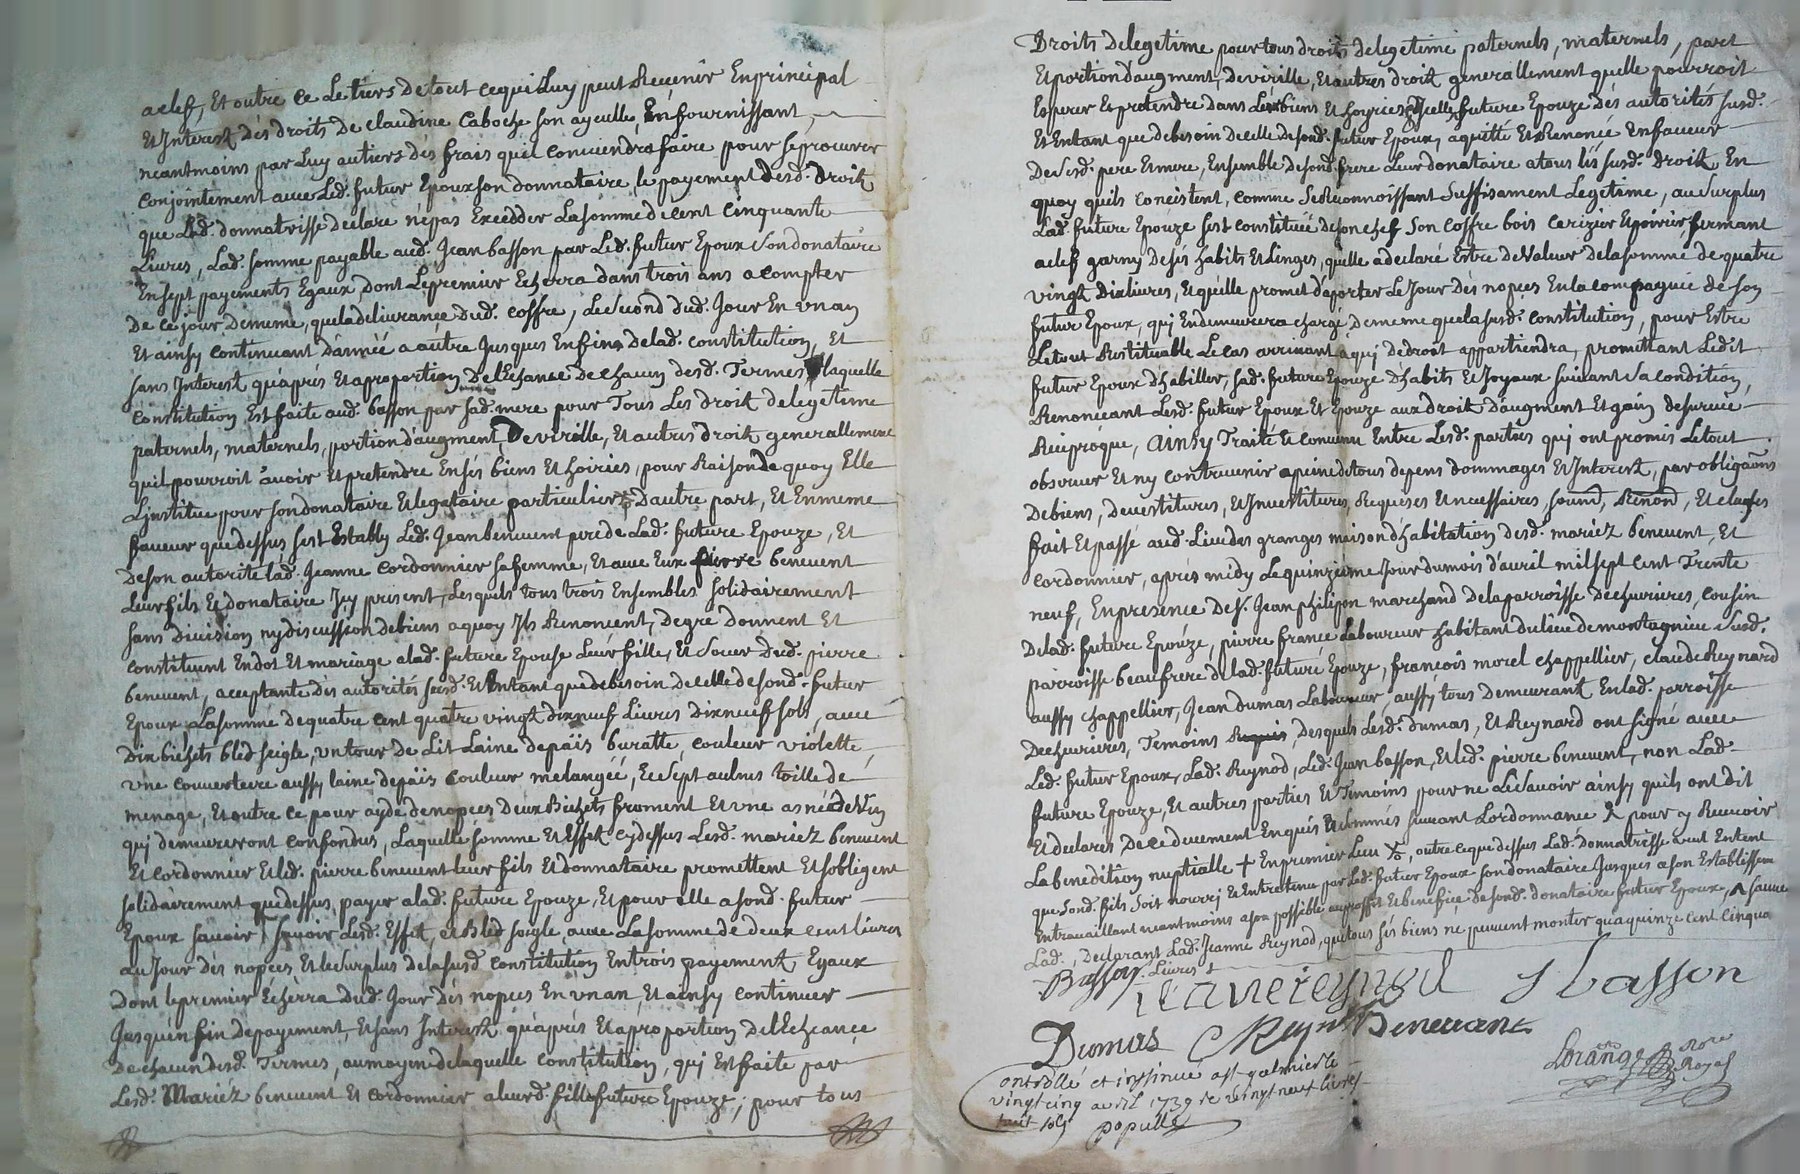 aclef, Et outre ce Le tiers de tout cequi Luy peut Revenir Enprincipal
Et Interest dés droits de claudine Caboche son ayeulle, En fournissant
neantmoins par Luy autiers dés frais quil conviendra faire pour seprocurer
conjointement avec Led. futur Epoux son donnataire, le payement desd. droits
que Lad. donnatrisse declare népas Exceдder La somme de cent cinquante
Livres, Lad. somme payable aud. Jean basson par Led. futur Epoux son donataire
En sept payements Egaux, dont Lepremier Echerra dans trois ans a compter
de ce jour, dememe, queladelivrance dud. coffre, Le second dud. Jour En un an
Et ainsy continuant d'année a autre Jusques Enfin de lad. constitution, Et
sans Interest qu'aprés Et aproportion de l'Echance de chacun desd. Termes, laquelle
constitution Est faite aud. basson par sad. mere pour Tous Les droits delegetime
paternels, maternels, portion d'augment, De virille, Et autres droits generallement
quil pourroit avoir Et pretendre Ensés biens Et hoiries, pour Raison de quoy Elle
L'institue pour son donataire Et legataire particulier, D'autre part, Et En meme
faveur que dessus sest Estably Led. Jean benevent pere de Lad. future Epouze, Et
de son autorité lad. Jeanne Cordonnier sa femme, Et avec Eux pierre benevent
Leur fils Et donataire Icy present, Lesquels tous trois Ensembles solidairement
sans division ny discussion de biens a quoy Ils Renoncent, de gré donnent Et
constituent Endot Et mariage alad. future Epouse Leur fille, Et soeur dud. pierre
benevent, acceptante dés autorités susd. Et Entant que debesoin de celle de sond. futur
Epoux, La somme de quatre cent quatre vingt dix neuf Livres Dix neuf sols, avec
Dix bichets bled seigle, un tour de Lit Laine depaïs buratte, couleur violette,
une couverture aussy laine depaïs couleur melangée, Et sept aulnes toille de
menage, Et outre ce pour ayde de nopces deux Bichets froment Et une asnée de Vin
qui demeureront confondus, Laquelle somme Et Effets cydessus Lesd. mariez benevent
Et cordonnier Et led. pierre benevent leur fils Et donnataire promettent Et s'obligent
solidairement que dessus, payer alad. future Epouze, Et pour elle a sond. futur
Epoux savoir, savoir Lesd. Effets, et Bled seigle, avec La somme de deux cent livres
au Jour dés nopces Et le surplus de la susd. constitution En trois payements Egaux
Dont le premier Echerra dud. Jour dés nopces En un an, Et ainsy continuer
Jusqu'en fin de payement, Et sans Interest qu'aprés Et aproportion de l'Echeance
de chacun desd. Termes, aumoyen de laquelle constitution, qui Est faite par
Lesd. Mariéz benevent Et cordonnier aleurd. fille future Epouze, pour tous
Droits delegetime pour tous droits delegetime paternels, maternels, part
Et portion d'augment, de virille, Et autres droits generallement quelle pourroit
Esperer Et pretendre dans Leurs biens Et hoyries, Icelle future Epouze dés autorités susd.
Et Entant que debesoin de celle de sond. futur Epoux, a quitté Et Renoncé En faveur
De sesd. pere Et mere, Ensemble de sond. frere Leur donataire a tous lés susd. droits En
quoy quils concistent, comme se Reconnoissant suffisament Legetime, au surplus
Lad. future Epouze sest constituée de son chef son coffre bois cerizier Et poirier, fermant
aclef garny de sés habits Et Linges, quelle a declaré Estre de Valeur de la somme de quatre
vingt Dix livres, Et qu'elle promet d'aporter Le Jour dés nopces En la compagnie de son
futur Epoux, qui Endemeurera chargé dememe que la susd. constitution, pour Estre
Le tout Restituable Le cas arrivant a qui de droit appartiendra, promettant Ledit
futur Epoux d'habiller sad. future Epouze d'habits Et Joyaux suivant sa condition,
Renonceant Lesd. futur Epoux Et Epouze aux droits d'augment Et gain de survie
Reciproque, Ainsy Traité Et convenu Entre Lesd. parties qui ont promis Le tout
observer Et ny contrevenir a peine de tous depens dommages Et Interest, par obligaõns
De biens, devestitures, Et Investitures, Requises Et necessaires, soumd, Renond, Et clauses
fait Et passé aud. Lieu dés granges maison d'habitation desd. mariez benevent, Et
cordonnier, aprés midy Le quinzieme Jour du mois d'avril mil sept cent Trente
neuf, En presence de sr. Jean philipon marchand de la parroisse de chevrieres, cousin
de lad. future Epouze, pierre france Laboureur habitant du lieu de montagnieu susd.
parroisse beaufrere de lad. future Epouze, françois morel chappellier, claude Reynard
aussy chappellier, Jean dumas Laboureur, aussy tous demeurant En lad. parroisse
De chevrieres, Temoins Requis, Desquels Lesd. dumas, Et Reynard ont signé avec
Led. futur Epoux, Lad. Reynod, Led. Jean basson, Et led. pierre benevent, non Lad.
future Epouze, Et autres parties Et Temoins pour ne Le savoir ainsy quils ont dit
Et declarés De ce duement Enquis Et sommés suivant Lordonnance ^ pour y Recevoir
La beneditõn nuptialle + En premier Lieu, outre ce que dessus Lad. Donnatrisse veut Entent
que sond. fils soit nourri Et Entretenu par Led. futur Epoux son donataire Jusques a son Etablissem
Entravaillant neantmoins a son possible auproffit Et benefice de sond. donataire futur Epoux, ^ sauve
Lad., Declarant Lad. Jeanne Reynod, que tous sés biens ne peuvent monter qu'aquinze cent cinqua
Livres
Basson
Jeanereynod
J basson
Dumas
Reynard
Benevant
Lorange Nore Royal
Controllé et insinué a st. galmier le
vingt cinq avril 1739 re vingt neuf livres
huit sols
populle